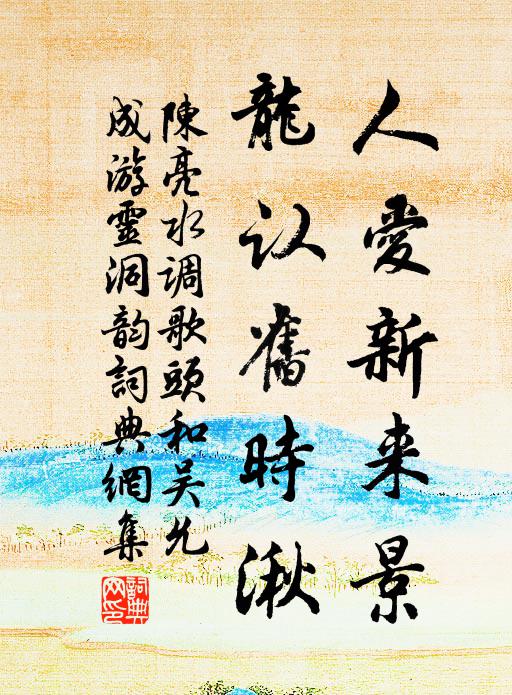 人愛新来景
龍认舊時湫
陳亮水调歌頭和吴允
成游靈洞韵詞典網集
詞典网印